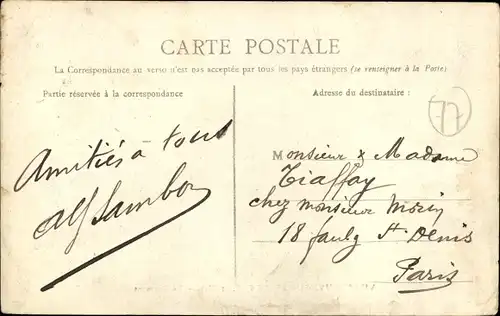 CARTE POSTALE
La Correspondance au verso n'est pas acceptée par tous les pays étrangers (se renseigner à la Poste)
Partie réservée à la correspondance
Adresse du destinataire :
77
Amitiés à tous
Monsieur & Madame
chez monsieur Morin
18 faubg St Denis
Paris